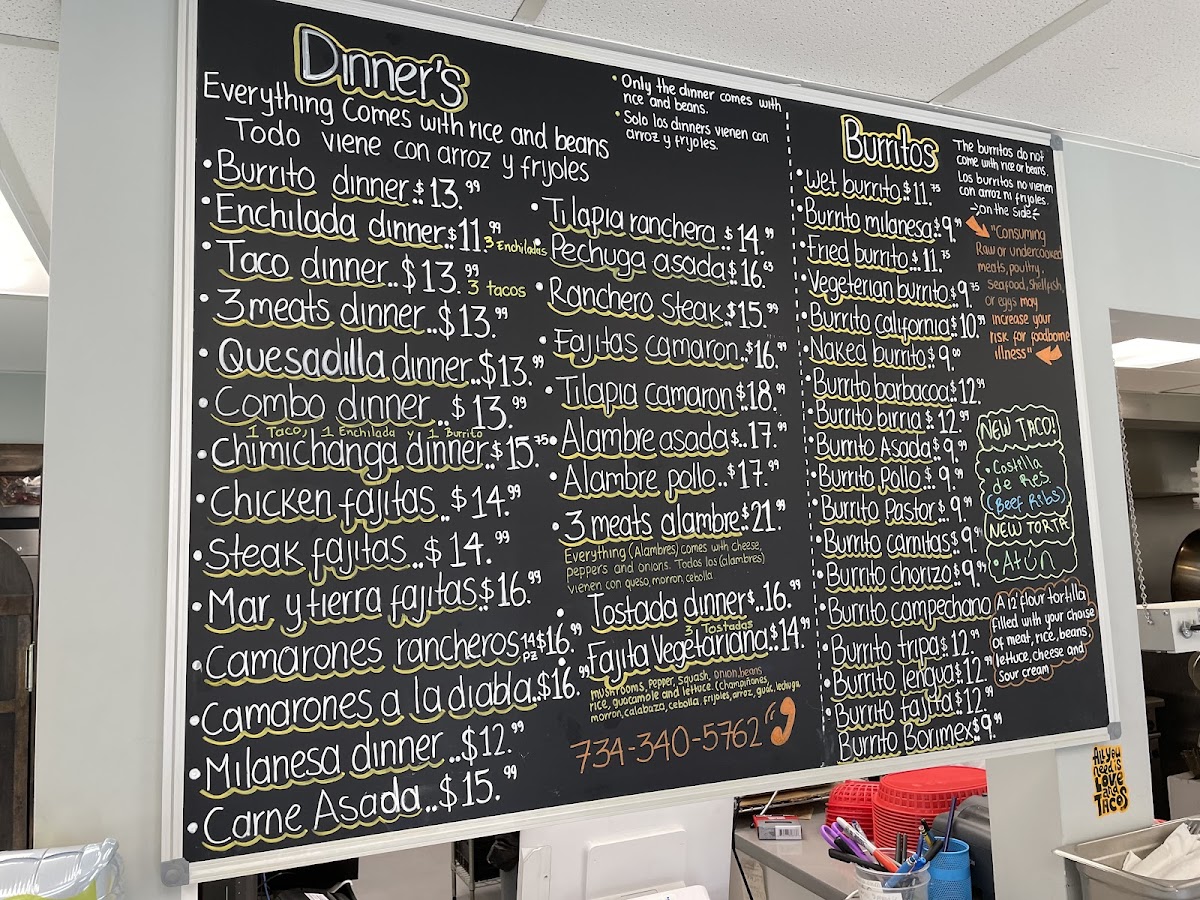 Dinner's
Everything Comes with rice and beans
Todo viene con arroz y frijoles
• Only the dinner comes with
rice and beans.
• Solo los dinners vienen con
arroz y frijoles.
• Burrito dinner.$13.99
• Enchilada dinner.$11.99
3 Enchiladas
• Taco dinner..$13.99
3 tacos
• 3 meats dinner..$13.99
• Quesadilla dinner..$13.99
• Combo dinner..$13.99
1 Taco, 1 Enchilada y 1 Burrito
• Chimichanga dinner.$15.75
• Chicken fajitas..$14.99
• Steak fajitas..$14.99
• Mar y tierra fajitas.$16.99
• Camarones rancheros 14 pz $16.99
• Camarones a la diabla.$16.99
• Milanesa dinner..$12.99
• Carne Asada..$15.99
• Tilapia ranchera.$14.99
• Pechuga asada.$16.65
• Ranchero Steak.$15.99
• Fajitas camaron.$16.99
• Tilapia camaron.$18.99
• Alambre asada.$.17.99
• Alambre pollo..$17.99
• 3 meats alambre.$21.99
Everything (Alambres) comes with cheese,
peppers and onions. Todos los (alambres)
vienen con queso, morron, cebolla.
• Tostada dinner.$.16.99
3 Tostadas
• Fajita Vegetariana.$14.99
mushrooms, Pepper, Squash, onion, beans
rice, guacamole and lettuce. (Champiñones,
morron, calabaza, cebolla, frijoles, arroz, guac, lechuga
734-340-5762
Burritos
The burritos do not
come with rice or beans.
Los burritos no vienen
con arroz ni frijoles.
→on the side←
• Wet burrito.$11.75
• Burrito milanesa.$9.99
• Fried burrito.$11.75
• Vegeterian burrito.$9.75
• Burrito california.$10.99
• Naked burrito.$9.00
• Burrito barbacoa.$12.99
• Burrito birria.$12.99
• Burrito Asada.$9.99
• Burrito Pollo.$9.99
• Burrito Pastor.$9.99
• Burrito carnitas.$9.99
• Burrito chorizo.$9.99
• Burrito campechano
• Burrito tripa.$12.99
• Burrito lengua.$12.99
• Burrito fajita.$12.99
• Burrito Borimex.$9.99
"Consuming
Raw or undercooked
meats, poultry,
seafood, shellfish,
or eggs may
increase your
risk for foodborne
illness"
NEW TACO!
• Costilla
de Res
(Beef Ribs)
NEW TORTA
• Atún
A 12 flour tortilla
filled with your choise
of meat, rice, beans,
lettuce, cheese and
sour cream
All you
need is
LOVE
and
TACOS